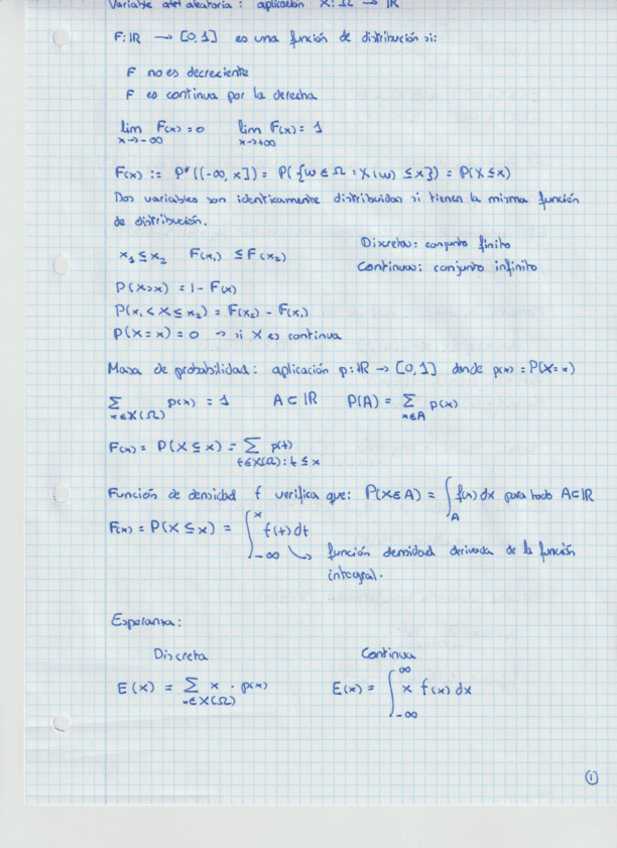 Variable aleatoria: aplicación X: Ω → IR
F: IR → [0,1] es una función de distribución si:
F no es decreciente
F es continua por la derecha
lim F(x) = 0 lim F(x) = 1
x→-∞ x→+∞
F(x) := P*((-∞, x]) = P({ω ∈ Ω : X(ω) ≤ x}) = P(X ≤ x)
Dos variables son identicamente distribuidas si tienen la misma función
de distribución.
x₁ ≤ x₂ F(x₁) ≤ F(x₂)
Discretas: conjunto finito
Continuas: conjunto infinito
P(X > x) = 1 - F(x)
P(x₁ < X ≤ x₂) = F(x₂) - F(x₁)
P(X = x) = 0 → si X es continua
Masa de probabilidad: aplicación p: IR → [0,1] donde p(x) = P(X = x)
∑ p(x) = 1 A ⊂ IR P(A) = ∑ p(x)
x∈X(Ω) x∈A
F(x) = P(X ≤ x) = ∑ p(t)
t∈X(Ω): t ≤ x
Función de densidad f verifica que: P(X∈A) = ∫_A f(x) dx para todo A⊂IR
F(x) = P(X ≤ x) = ∫_{-∞}^{x} f(t) dt
↳ función densidad derivada de la función
integral.
Esperanza:
Discreta Continua
E(x) = ∑ x · p(x) E(x) = ∫_{-∞}^{∞} x f(x) dx
x∈X(Ω)
1